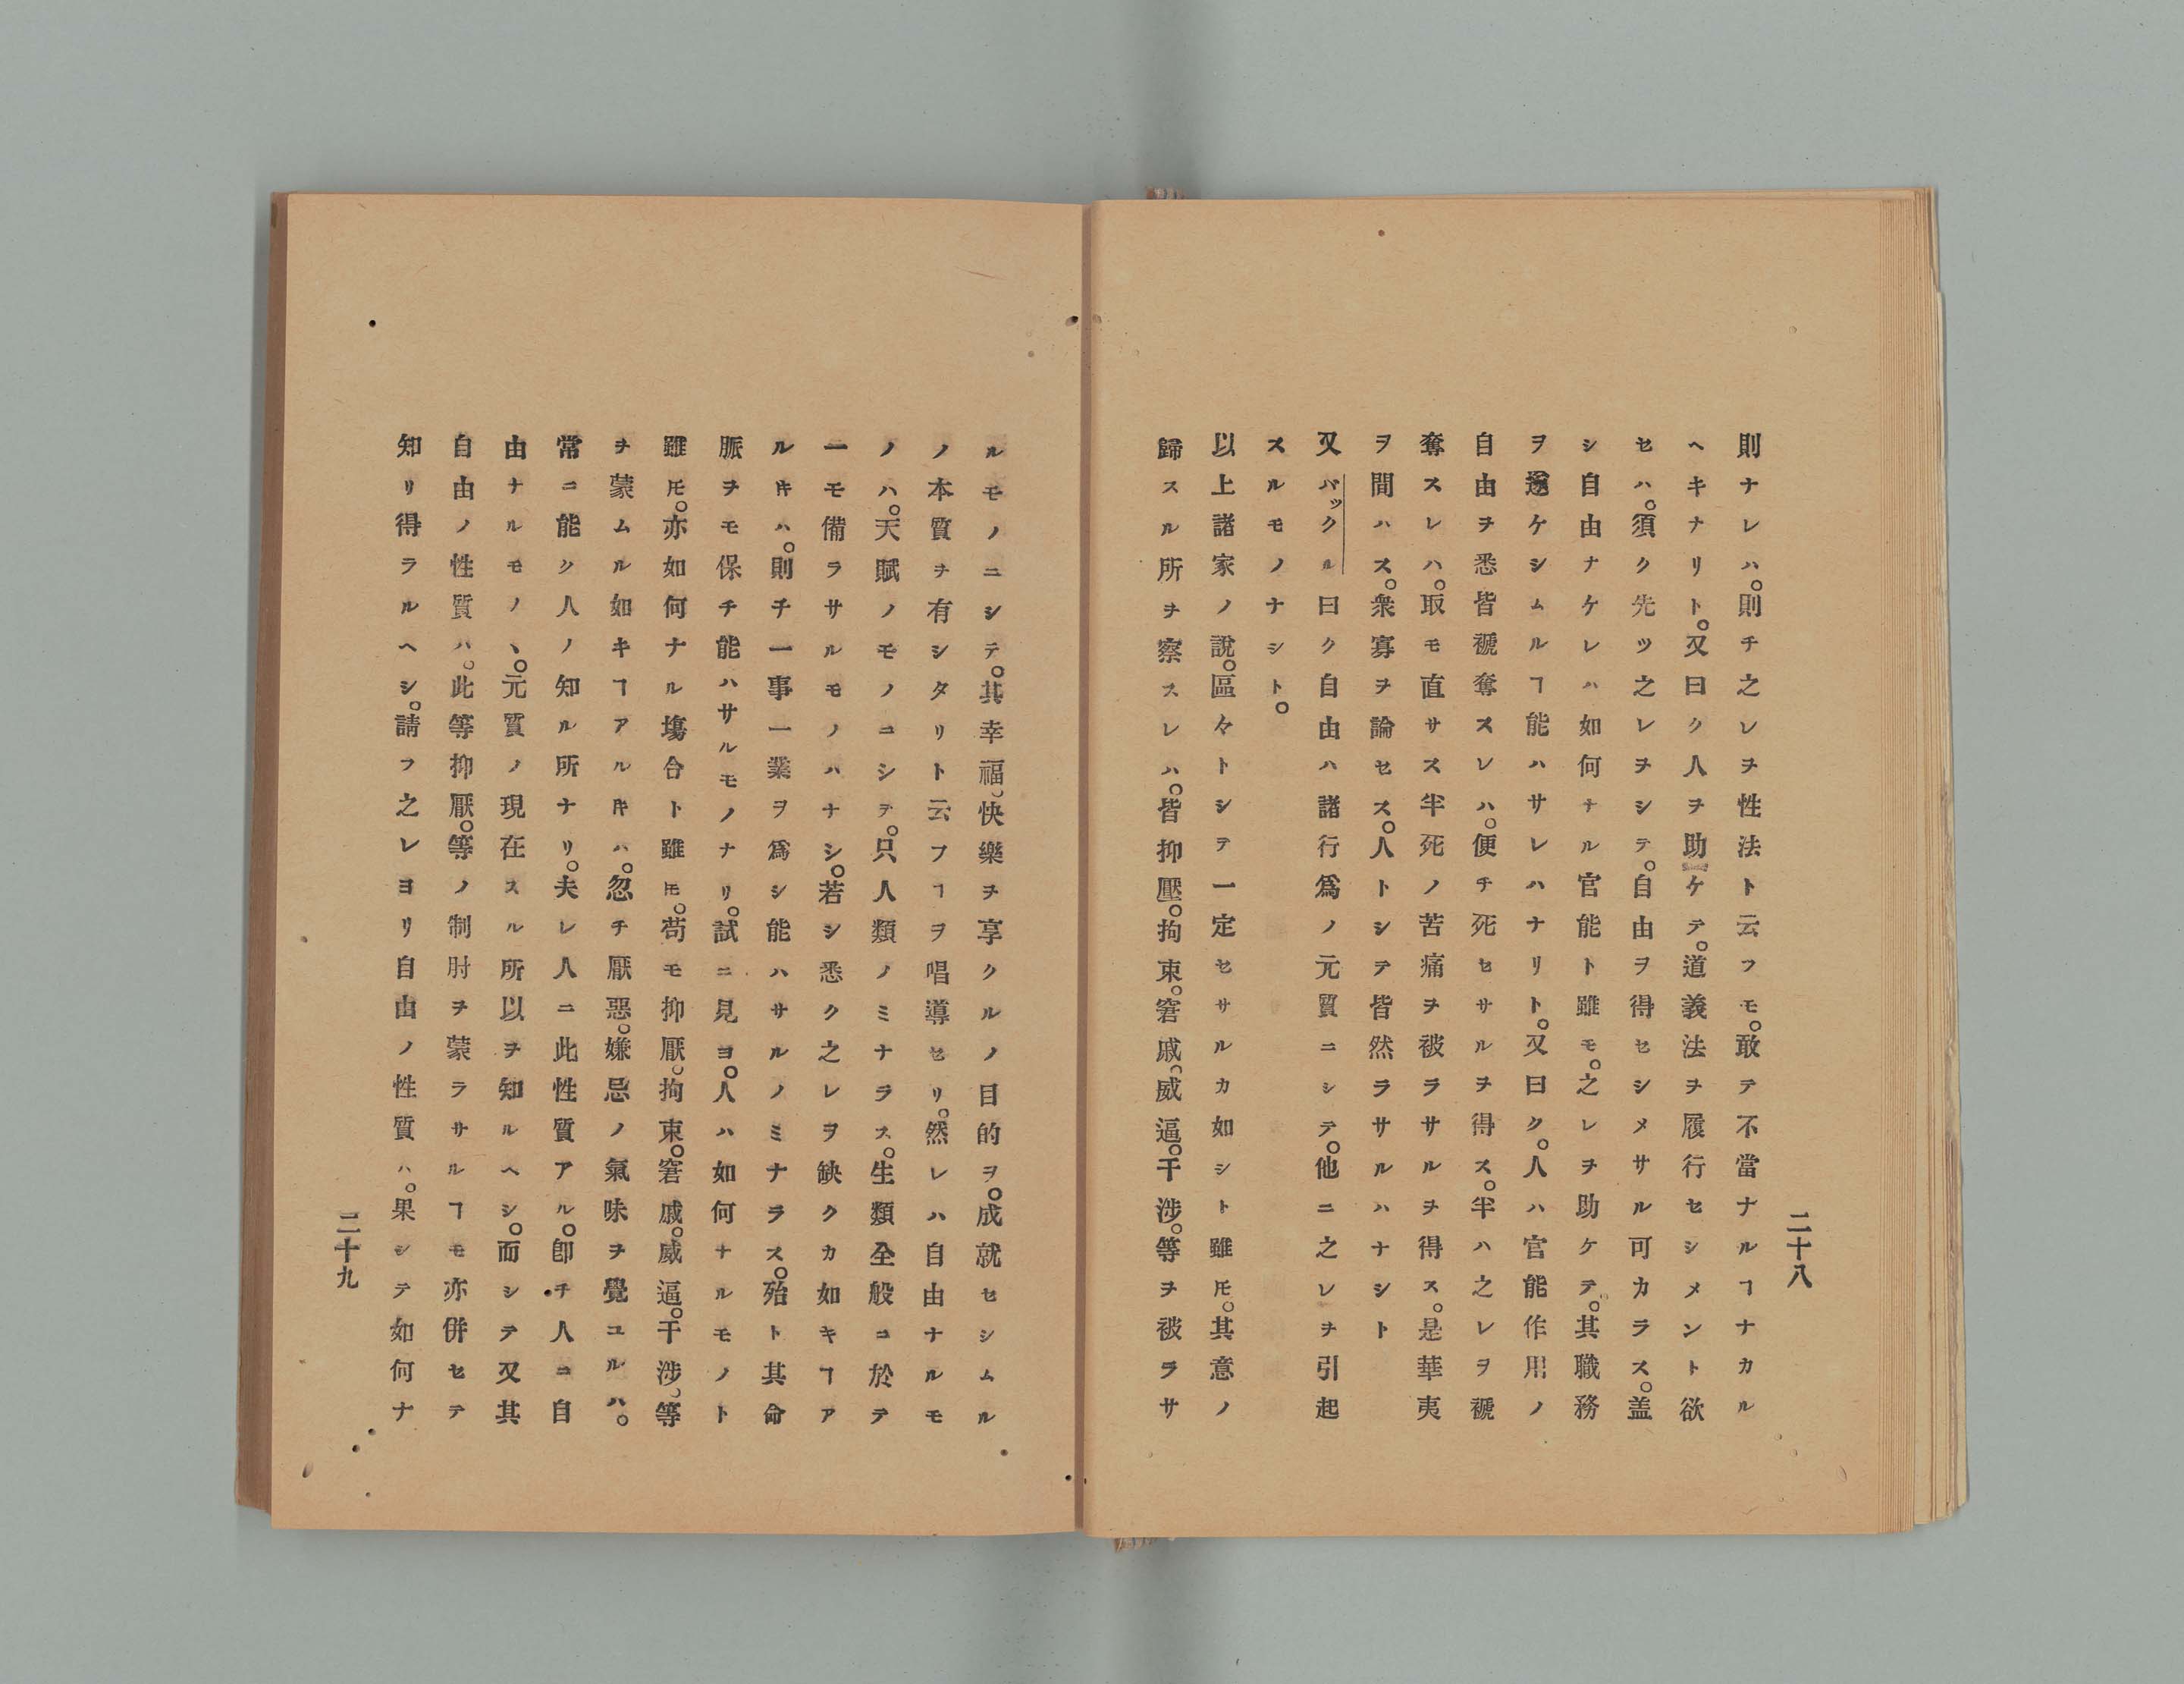 二十八
則ナレハ。則チ之レヲ性法ト云フモ。敢テ不當ナルヿナカル
ヘキナリト。又曰ク人ヲ助ケテ。道義法ヲ履行セシメント欲
セハ。須ク先ツ之レヲシテ。自由ヲ得セシメサル可カラス。盖
シ自由ナケレハ如何ナル官能ト雖モ。之レヲ助ケテ。其職務
ヲ遂ケシムルヿ能ハサレハナリト。又曰ク。人ハ官能作用ノ
自由ヲ悉皆褫奪スレハ。便チ死セサルヲ得ス。半ハ之レヲ褫
奪スレハ。取モ直サス半死ノ苦痛ヲ被ラサルヲ得ス。是華夷
ヲ間ハス。衆寡ヲ論セス。人トシテ皆然ラサルハナシト
又バックル曰ク自由ハ諸行爲ノ元質ニシテ。他ニ之レヲ引起
スルモノナシト。
以上諸家ノ說。區々トシテ一定セサルカ如シト雖𪜈。其意ノ
歸スル所ヲ察スレハ。皆抑壓。拘束。窘戚。威逼。干涉。等ヲ被ラサ
ルモノニシテ。其幸福。快樂ヲ享クルノ目的ヲ。成就セシムル
ノ本質ヲ有シタリト云フヿヲ唱導セリ。然レハ自由ナルモ
ノハ。天賦ノモノニシテ。只人類ノミナラス。生類全般ニ於テ
一モ備ラサルモノハナシ。若シ悉ク之レヲ缺クカ如キヿア
ル𪜀ハ。則チ一事一業ヲ爲シ能ハサルノミナラス。殆ト其命
脈ヲモ保チ能ハサルモノナリ。試ニ見ヨ。人ハ如何ナルモノト
雖𪜈。亦如何ナル塲合ト雖𪜈。苟モ抑厭。拘束。窘戚。威逼。干涉。等
ヲ蒙ムル如キヿアル𪜀ハ。忽チ厭惡。嫌忌ノ氣味ヲ覺ユルハ。
常ニ能ク人ノ知ル所ナリ。夫レ人ニ此性質アル。卽チ人ニ自
由ナルモノヽ。元質ノ現在スル所以ヲ知ルヘシ。而シテ又其
自由ノ性質ハ。此等抑厭。等ノ制肘ヲ蒙ラサルヿモ亦併セテ
知リ得ラルヘシ。請フ之レヨリ自由ノ性質ハ。果シテ如何ナ
二十九